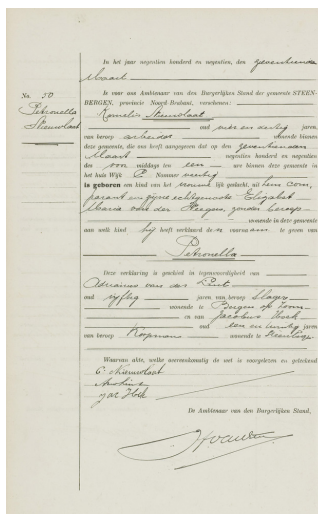 In het jaar negentien honderd en negentien, den zeventienden
Maart
is voor ons Ambtenaar van den Burgerlijken Stand der gemeente STEEN-
BERGEN, provincie Noord-Brabant, verschenen:
No. 50
Petronella
Nieuwlaat
Kornelis Nieuwlaat
oud vier en dertig jaren,
van beroep arbeider wonende binnen
deze gemeente, die ons heeft aangegeven dat op den zeventienden
Maart negentien honderd en negentien
des voor middags ten een ure binnen deze gemeente in
het huis Wijk Nummer veertig
is geboren een kind van het vrouwelijk geslacht, uit hem com-
parant en zijne echtgenoote Elizabet
Maria van der zonder beroep
wonende in deze gemeente
aan welk kind hij heeft verklaard de voornaam te geven van
Petronella
Deze verklaring is geschied in tegenwoordigheid van
Adrianus van der
oud vijftig jaren, van beroep Slager
wonende te Bergen op Zoom
en van Jacobus Hoek
oud een en jaren
van beroep Koopman wonende te
Waarvan akte, welke overeenkomstig de wet is voorgelezen en geteekend
C. Nieuwlaat
Hoek
De Ambtenaar van den Burgerlijken Stand,